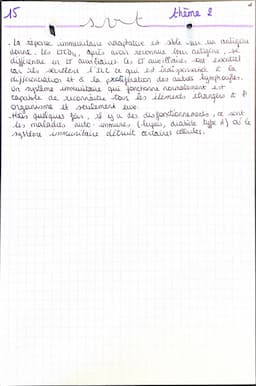 15 thème 2
svt
. La réponse immunitaire adaptative est ciblée sur un antigène
donné. Les LTCD4, après avoir reconnu leur antigène, se
différencie en LT auxiliaires. Les LT auxiliaires sont essentiel
car ils sécrètent l'IL2 ce qui est indispensable à la
différenciation et à la prolifération des autres lymphocytes.
Un système immunitaire qui fonctionne normalement est
capable de reconnaître tous les éléments étrangers à l'
organisme et seulement eux.
. Mais quelques fois, il y a des disfonctionnements, ce sont
les maladies auto-immunes (lupus, diabète type 1) où le
système immunitaire détruit certaines cellules.